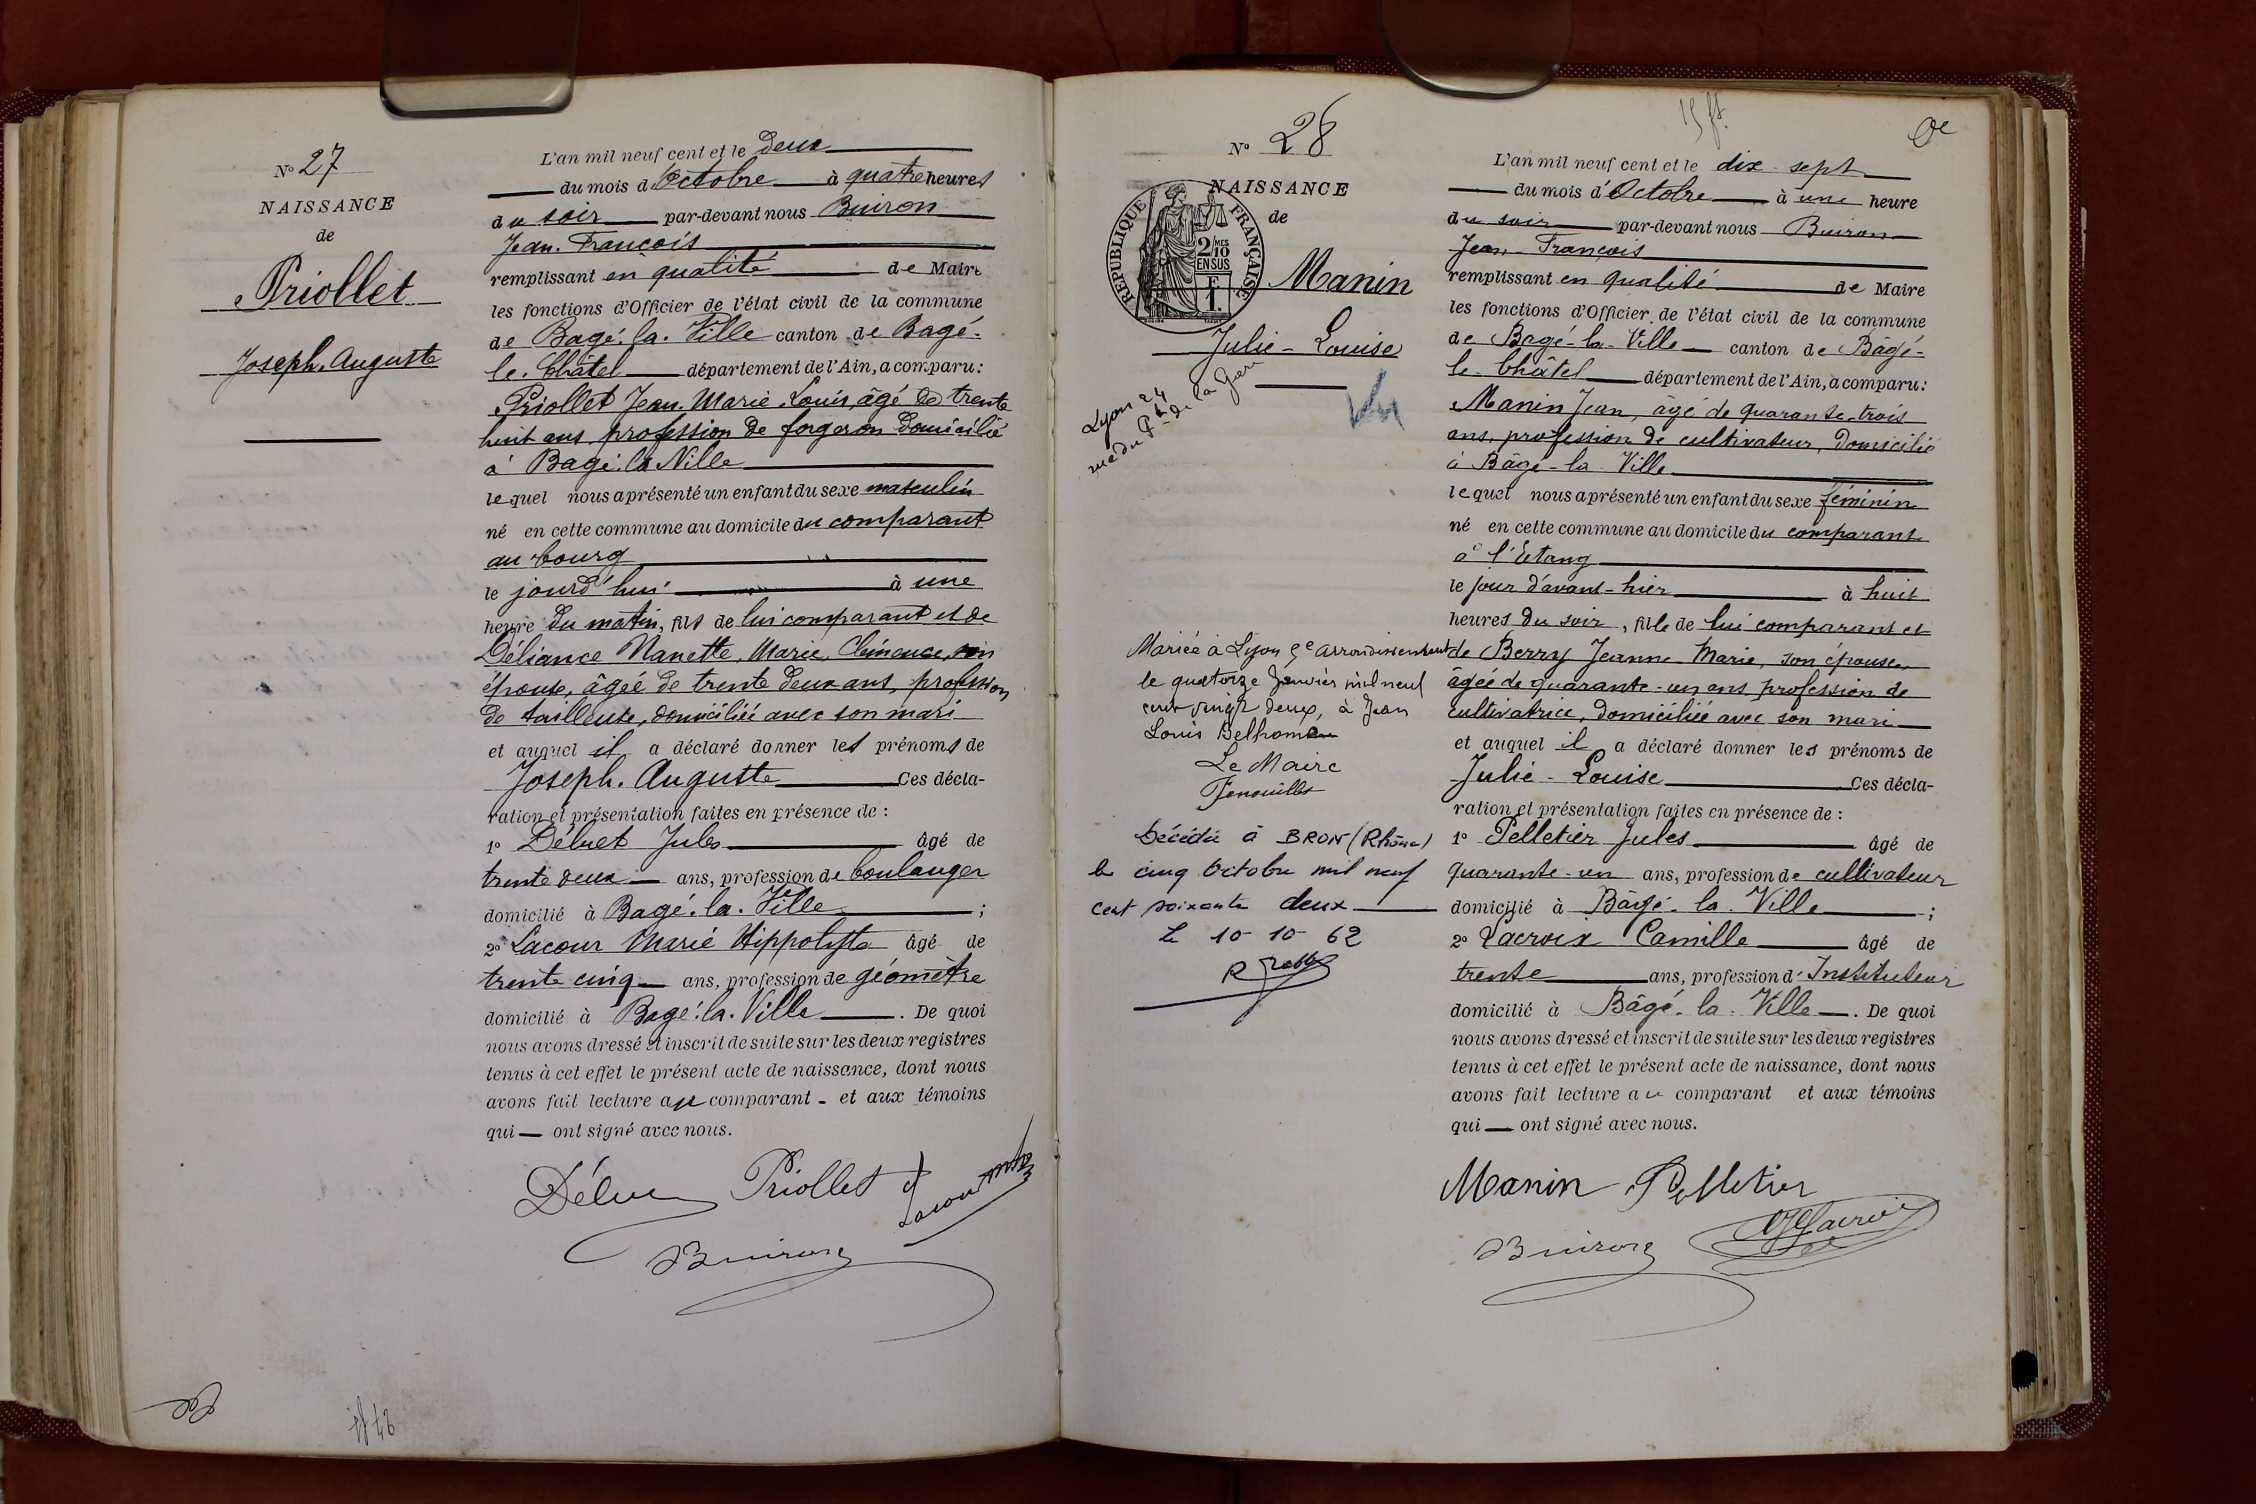 N° 27
NAISSANCE
de
Priollet
Joseph. Auguste
L'an mil neuf cent et le deux
du mois d'Octobre à quatre heures
du soir par-devant nous Buiron
Jean. François
remplissant en qualité de Maire
les fonctions d'Officier de l'état civil de la commune
de Bagé. la. Ville canton de Bagé-
le. Châtel département de l'Ain, a comparu:
Priollet Jean. Marie. Louis, âgé de trente
huit ans, profession de forgeron domicilié
à Bagé. la Ville
lequel nous a présenté un enfant du sexe masculin
né en cette commune au domicile du comparant
au bourg
le jourd'hui à une
heure du matin, fils de lui comparant et de
Déliance Nanette, Marie, Clémence, son
épouse, âgée de trente deux ans, profession
de tailleuse, domiciliée avec son mari
et auquel il a déclaré donner les prénoms de
Joseph. Auguste Ces décla-
ration et présentation faites en présence de :
1° Déluet Jules âgé de
trente deux ans, profession de boulanger
domicilié à Bagé. la. Ville ;
2° Lacour Marie Hippolyte âgé de
trente cinq ans, profession de géomètre
domicilié à Bagé. la. Ville. De quoi
nous avons dressé et inscrit de suite sur les deux registres
tenus à cet effet le présent acte de naissance, dont nous
avons fait lecture au comparant - et aux témoins
qui ont signé avec nous.
Priollet
Buiron
N° 28
NAISSANCE
de
RÉPUBLIQUE FRANÇAISE
2/10 MES
EN SUS
1 F
Manin
Julie - Louise
Lyon 24
rue du Pt de la Gare
Mariée à Lyon 5e arrondissement
le quatorze Janvier mil neuf
cent vingt deux, à Jean
Louis Belhomme
Le Maire
Décédée à BRON (Rhône)
le cinq Octobre mil neuf
cent soixante deux
le 10-10-62
L'an mil neuf cent et le dix-sept
du mois d'Octobre à une heure
du soir par-devant nous Buiron
Jean-François
remplissant en qualité de Maire
les fonctions d'Officier de l'état civil de la commune
de Bagé-la-Ville canton de Bâgé-
le-Châtel département de l'Ain, a comparu:
Manin Jean, âgé de quarante-trois
ans, profession de cultivateur, domicilié
à Bâgé-la-Ville
lequel nous a présenté un enfant du sexe féminin
né en cette commune au domicile du comparant
à l'Etang
le jour d'avant-hier à huit
heures du soir, fille de lui comparant et
de Berry Jeanne-Marie, son épouse,
âgée de quarante-un ans, profession de
cultivatrice, domiciliée avec son mari
et auquel il a déclaré donner les prénoms de
Julie-Louise Ces décla-
ration et présentation faites en présence de :
1° Pelletier Jules âgé de
quarante-un ans, profession de cultivateur
domicilié à Bâgé-la-Ville ;
2° Lacroix Camille âgé de
trente ans, profession d'Instituteur
domicilié à Bâgé-la-Ville. De quoi
nous avons dressé et inscrit de suite sur les deux registres
tenus à cet effet le présent acte de naissance, dont nous
avons fait lecture au comparant et aux témoins
qui ont signé avec nous.
Manin Pelletier
Buiron Lacroix